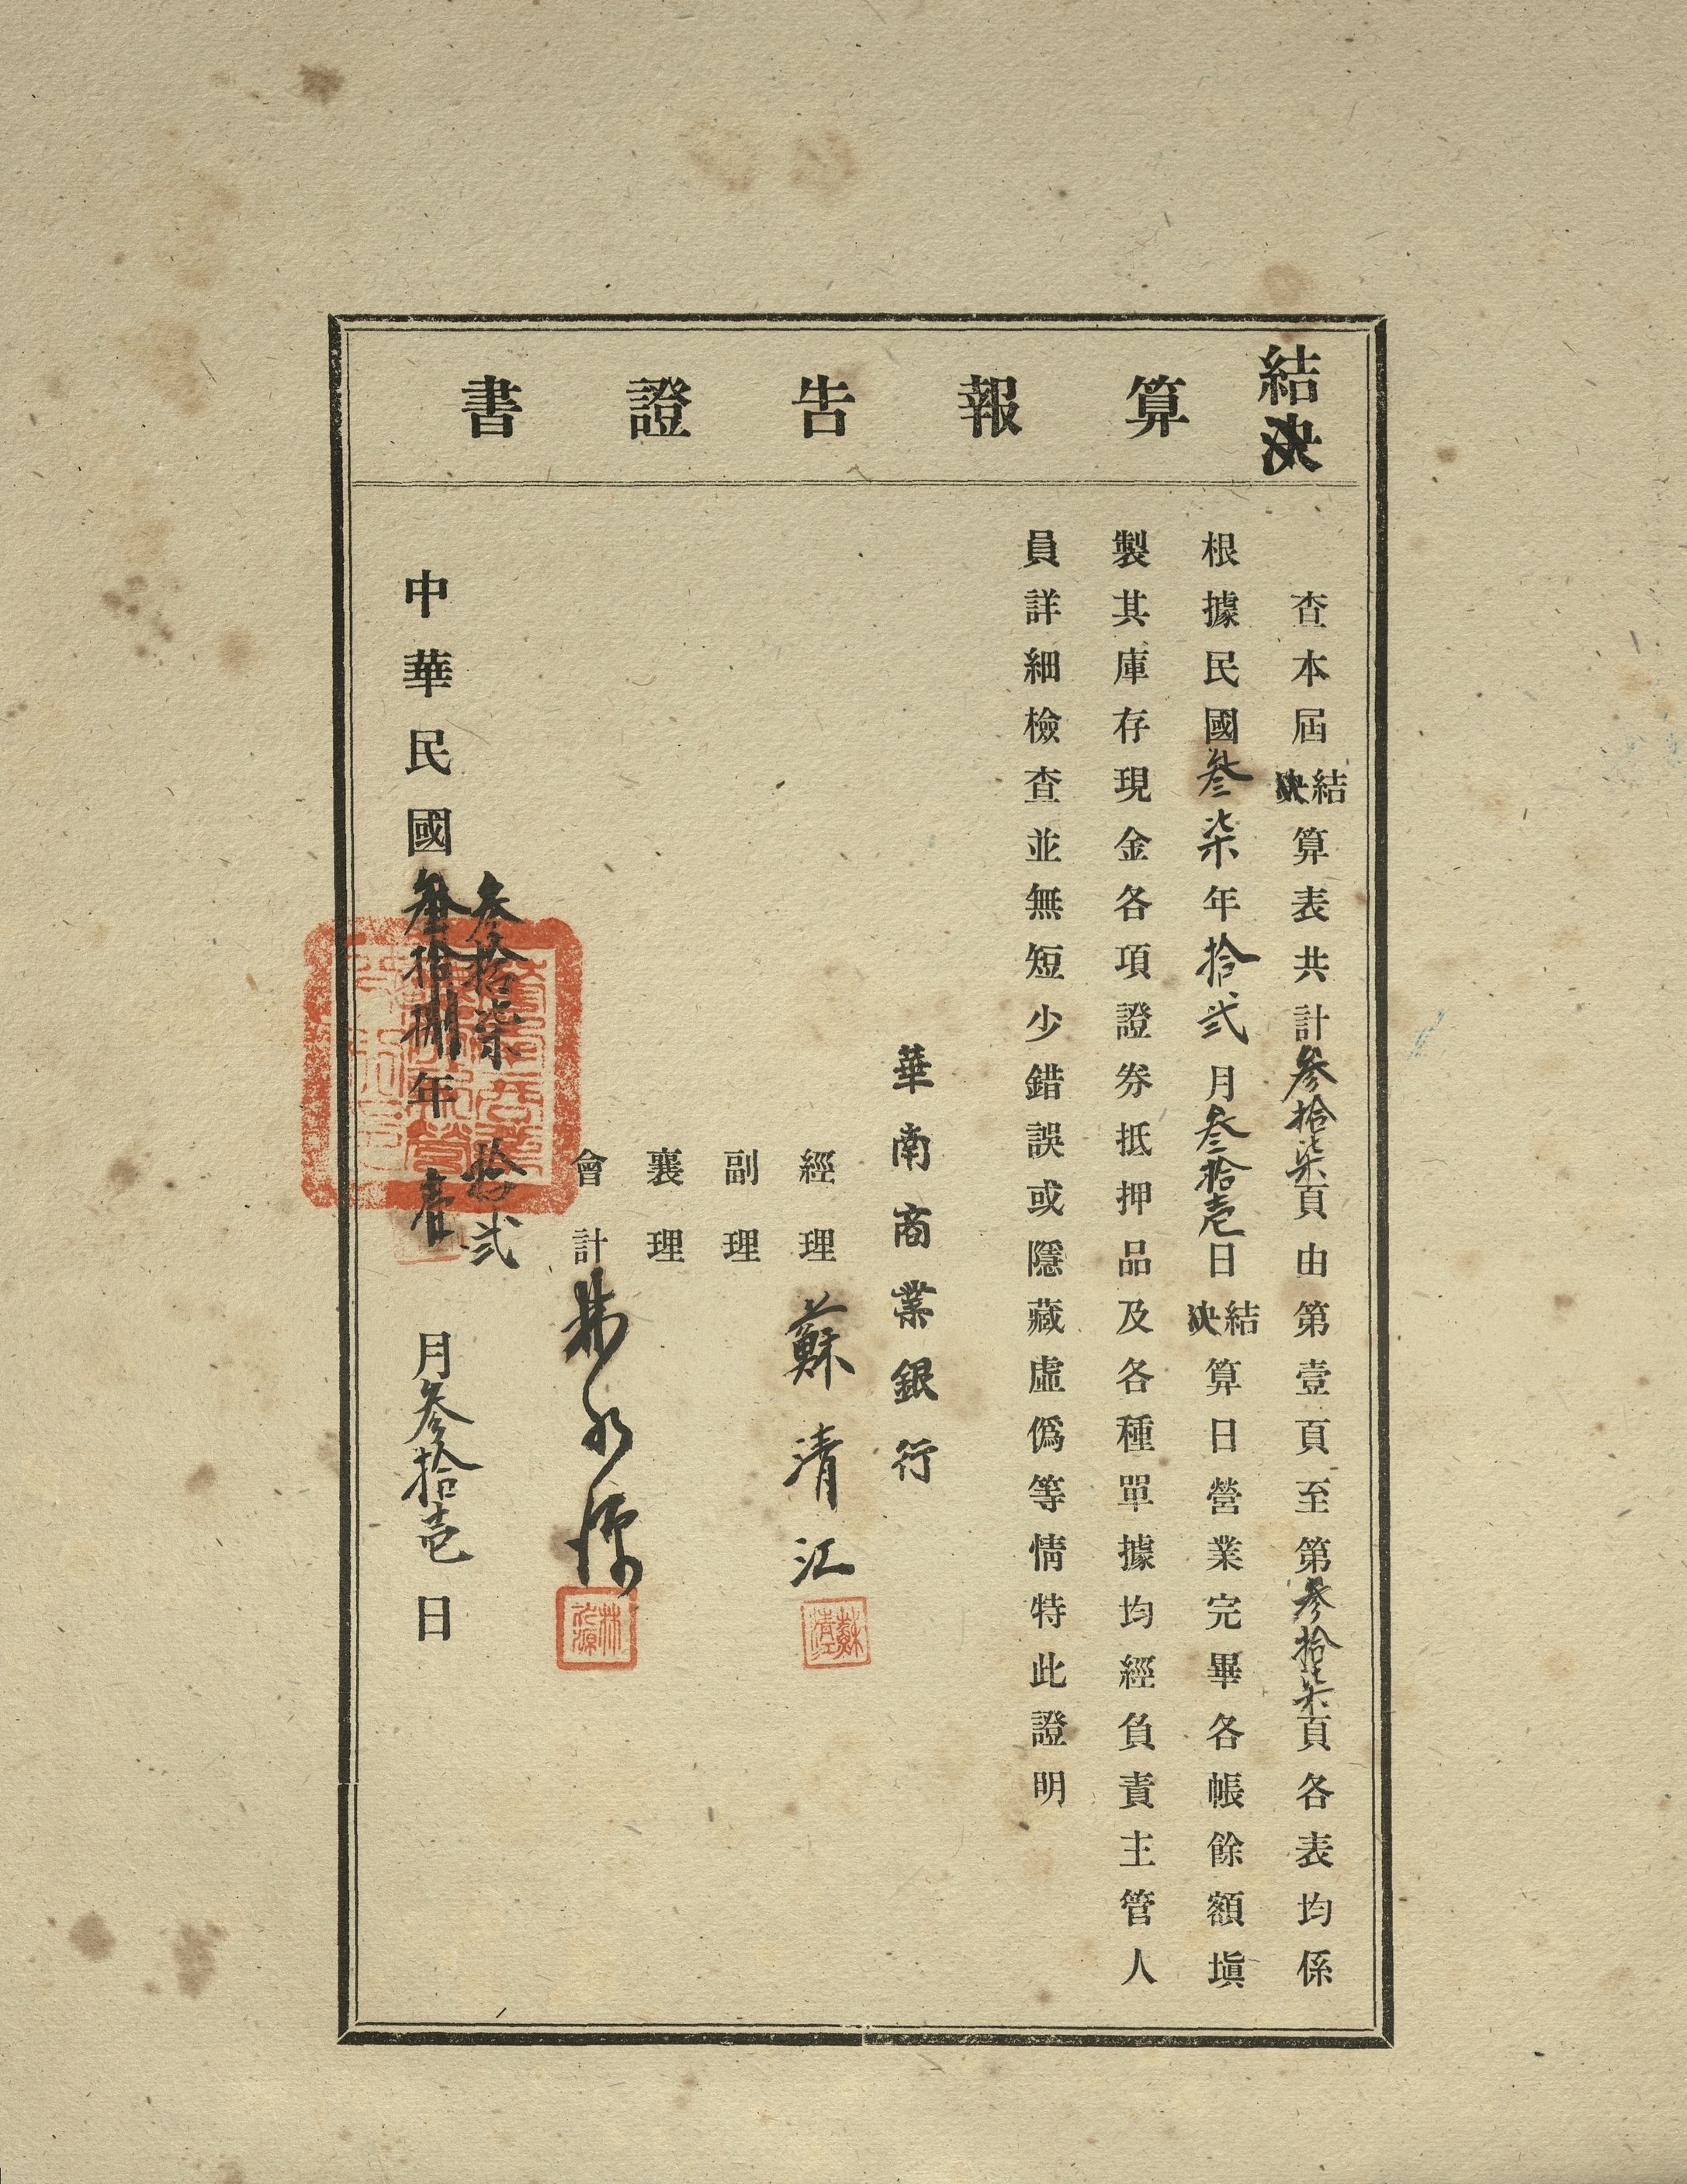 結決算報告證書
查本屆結決算表共計參拾柒頁由第壹頁至第參拾柒頁各表均係
根據民國叁柒年拾貳月叁拾壱日結決算日營業完畢各帳餘額塡
製其庫存現金各項證券抵押品及各種單據均經負責主管人
員詳細檢查並無短少錯誤或隱藏虛僞等情特此證明
華南商業銀行
經理 蘇清江
蘇清江
副理
襄理
會計 林永源
參拾柒 拾弍
中華民國叁拾捌年壹月參拾壱日